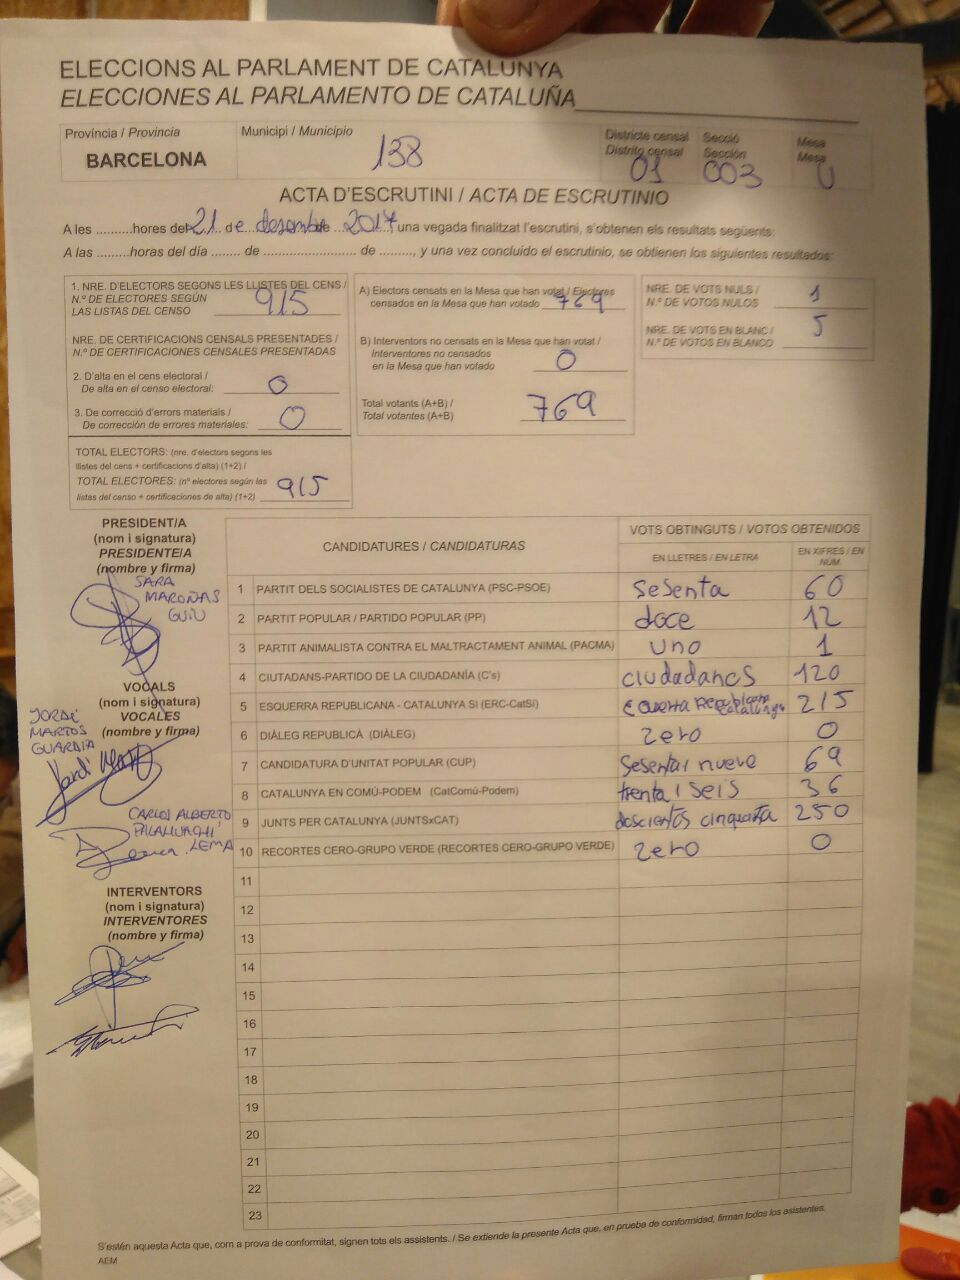 ELECCIONS AL PARLAMENT DE CATALUNYA
ELECCIONES AL PARLAMENTO DE CATALUÑA
Província / Provincia
BARCELONA
Municipi / Municipio
138
Districte censal
Distrito censal
01
Secció
Sección
003
Mesa
Mesa
U
ACTA D'ESCRUTINI / ACTA DE ESCRUTINIO
A les ..........hores del 21 de desembre de 2017 una vegada finalitzat l'escrutini, s'obtenen els resultats següents:
A las ..........horas del día ........ de ......................... de ........, y una vez concluido el escrutinio, se obtienen los siguientes resultados:
1. NRE. D'ELECTORS SEGONS LES LLISTES DEL CENS /
N.º DE ELECTORES SEGÚN
LAS LISTAS DEL CENSO 915
NRE. DE CERTIFICACIONS CENSALS PRESENTADES /
N.º DE CERTIFICACIONES CENSALES PRESENTADAS
2. D'alta en el cens electoral /
De alta en el censo electoral: 0
3. De correcció d'errors materials /
De corrección de errores materiales: 0
TOTAL ELECTORS: (nre. d'electors segons les
llistes del cens + certificacions d'alta) (1+2) /
TOTAL ELECTORES: (nº electores según las
listas del censo + certificaciones de alta) (1+2) 915
A) Electors censats en la Mesa que han votat / Electores
censados en la Mesa que han votado 769
B) Interventors no censats en la Mesa que han votat /
Interventores no censados
en la Mesa que han votado 0
Total votants (A+B) /
Total votantes (A+B) 769
NRE. DE VOTS NULS /
N.º DE VOTOS NULOS 1
NRE. DE VOTS EN BLANC /
N.º DE VOTOS EN BLANCO 5
PRESIDENT/A
(nom i signatura)
PRESIDENTE/A
(nombre y firma)
SARA
MAROÑAS
GUIU
VOCALS
(nom i signatura)
VOCALES
(nombre y firma)
JORDI
MARTOS
GUARDIA
CARLOS ALBERTO
PILAHUACHI
LEMA
INTERVENTORS
(nom i signatura)
INTERVENTORES
(nombre y firma)
CANDIDATURES / CANDIDATURAS
VOTS OBTINGUTS / VOTOS OBTENIDOS
EN LLETRES / EN LETRA
EN XIFRES / EN NÚM.
1 PARTIT DELS SOCIALISTES DE CATALUNYA (PSC-PSOE) sesenta 60
2 PARTIT POPULAR / PARTIDO POPULAR (PP) doce 12
3 PARTIT ANIMALISTA CONTRA EL MALTRACTAMENT ANIMAL (PACMA) uno 1
4 CIUTADANS-PARTIDO DE LA CIUDADANÍA (C's) ciudadanos 120
5 ESQUERRA REPUBLICANA - CATALUNYA SI (ERC-CatSI) Republicana Catalunya 215
6 DIÀLEG REPUBLICÀ (DIÀLEG) zero 0
7 CANDIDATURA D'UNITAT POPULAR (CUP) sesenta i nueve 69
8 CATALUNYA EN COMÚ-PODEM (CatComú-Podem) trenta i seis 36
9 JUNTS PER CATALUNYA (JUNTSxCAT) doscientos cinquanta 250
10 RECORTES CERO-GRUPO VERDE (RECORTES CERO-GRUPO VERDE) zero 0
11
12
13
14
15
16
17
18
19
20
21
22
23
S'estén aquesta Acta que, com a prova de conformitat, signen tots els assistents. / Se extiende la presente Acta que, en prueba de conformidad, firman todos los asistentes.
AEM